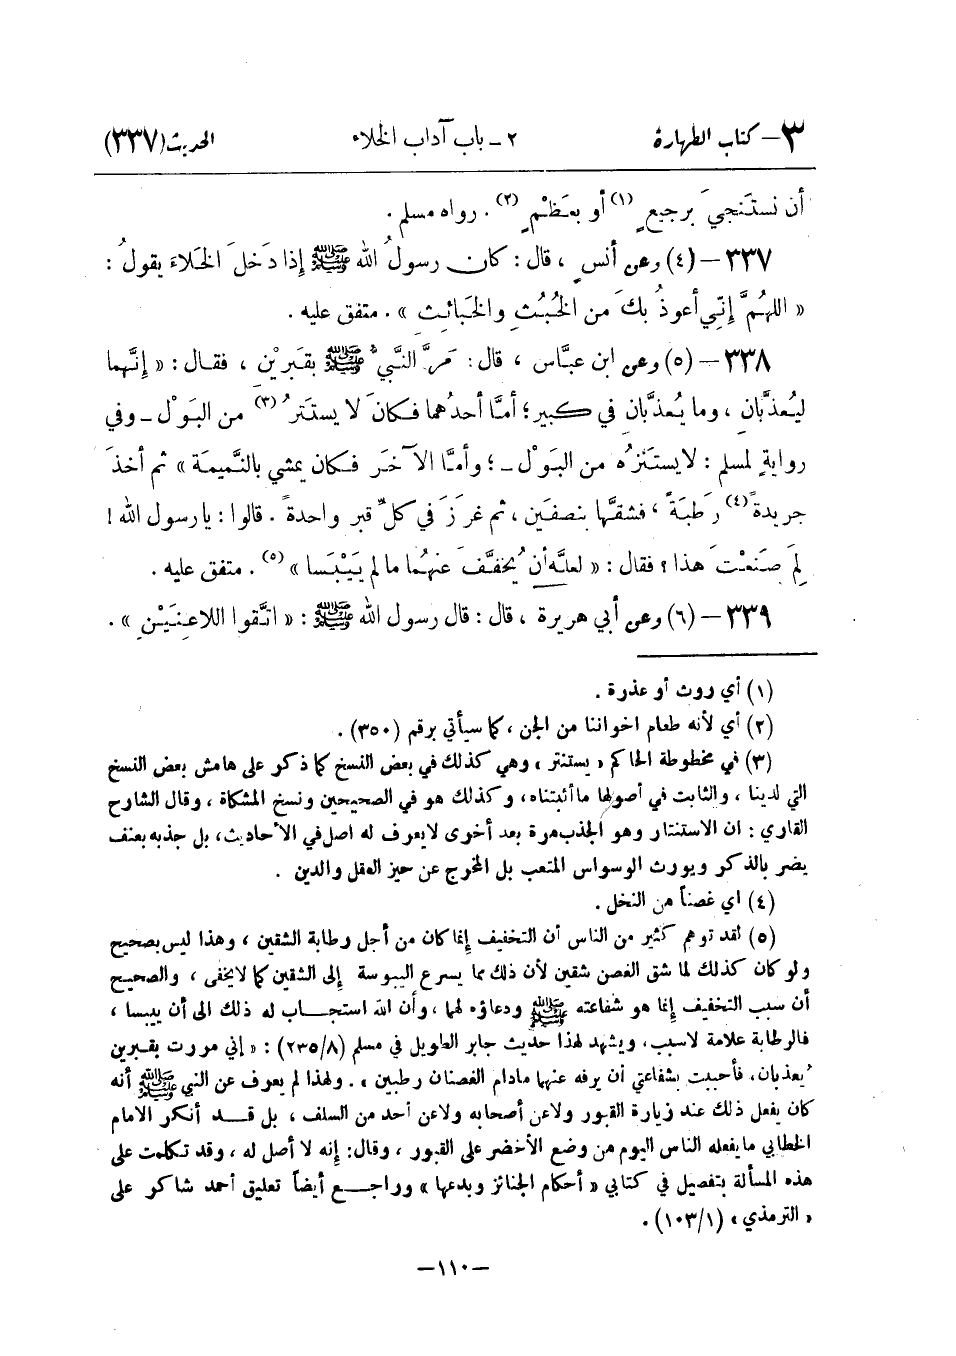 ٣ – كتاب الطهارة ٢ – باب آداب الخلاء الحديث (٣٣٧)
أن نستَنجيَ برجيعٍ (١) أو بعَظْمٍ (٢) . رواه مسلم .
٣٣٧ – (٤) وعن أنسٍ ، قال : كان رسولُ الله ﷺ إذا دَخلَ الخَلاءَ يقولُ :
« اللهُمَّ إنّي أعوذُ بكَ من الخُبُثِ والخَبائثِ » . متفق عليه .
٣٣٨ – (٥) وعن ابن عبَّاس ، قال : مَرَّ النَّبيُّ ﷺ بقَبرَيْنِ ، فقـال : « إنَّهما
ليُعذَّبانِ ، وما يُعذَّبانِ في كبيرٍ ؛ أمَّا أحدُهما فـكانَ لا يستـَترُ (٣) من البَوْلِ – وفي
روايةٍ لمسلم : لا يستَنزِهُ من البَوْلِ – ؛ وأمَّا الآخَرُ فـكان يمشي بالنَّميمَة » ثم أخذَ
جريدةً (٤) رَطبَةً ، فشقَّها بنصفَينِ ، ثم غرَزَ في كلِّ قبرٍ واحدةً . قالوا : يا رسول الله !
لِمَ صَنَعْتَ هذا ؟ فقال : « لعلَّه أن يُخفَّفَ عنهُما ما لم يَيْبَسا » (٥) . متفق عليه .
٣٣٩ – (٦) وعن أبي هريرة ، قال : قال رسول الله ﷺ : « اتَّقوا اللاعِنَيْنِ » .
(١) أي روث أو عذرة .
(٢) أي لأنه طعام اخواننا من الجن ، كما سيأتي برقم (٣٥٠) .
(٣) في مخطوطة الحاكم « يستنتر » وهي كذلك في بعض النسخ كما ذكر على هامش بعض النسخ
التي لدينا ، والثابت في أصولها ما أثبتناه ، وكذلك هو في الصحيحين ونسخ المشكاة ، وقال الشارح
القاري : ان الاستنتار وهو الجذب مرة بعد أخرى لا يعرف له اصل في الأحاديث ، بل جذبه بعنف
يضر بالذكر ويورث الوسواس المتعب بل المخرج عن حيز العقل والدين .
(٤) اي غصناً من النخل .
(٥) لقد توهم كثير من الناس أن التخفيف إنما كان من أجل رطابة الشقين ، وهذا ليس بصحيح
ولو كان كذلك لما شق الغصن شقين لأن ذلك مما يسرع اليبوسة إلى الشقين كما لا يخفى ، والصحيح
أن سبب التخفيف إنما هو شفاعته ﷺ ودعاؤه لهما ، وأن الله استجـاب له ذلك الى أن ييبسا ،
فالرطابة علامة لا سبب ، ويشهد لهذا حديث جابر الطويل في مسلم (٢٣٥/٨) : « إني مررت بقبرين
يعذبان ، فأحببت بشفاعتي أن يرفه عنهما مادام الغصنان رطبين » . ولهذا لم يعرف عن النبي ﷺ أنه
كان يفعل ذلك عند زيارة القبور ولا عن أصحابه ولا عن أحد من السلف ، بل قـد أنكر الامام
الخطابي ما يفعله الناس اليوم من وضع الأخضر على القبور ، وقال : إنه لا أصل له ، وقد تكلمت على
هذه المسألة بتفصيل في كتابي « أحكام الجنائز وبدعها » وراجـع أيضاً تعليق أحمد شاكر على
« الترمذي » (١٠٣/١) .
– ١١٠ –